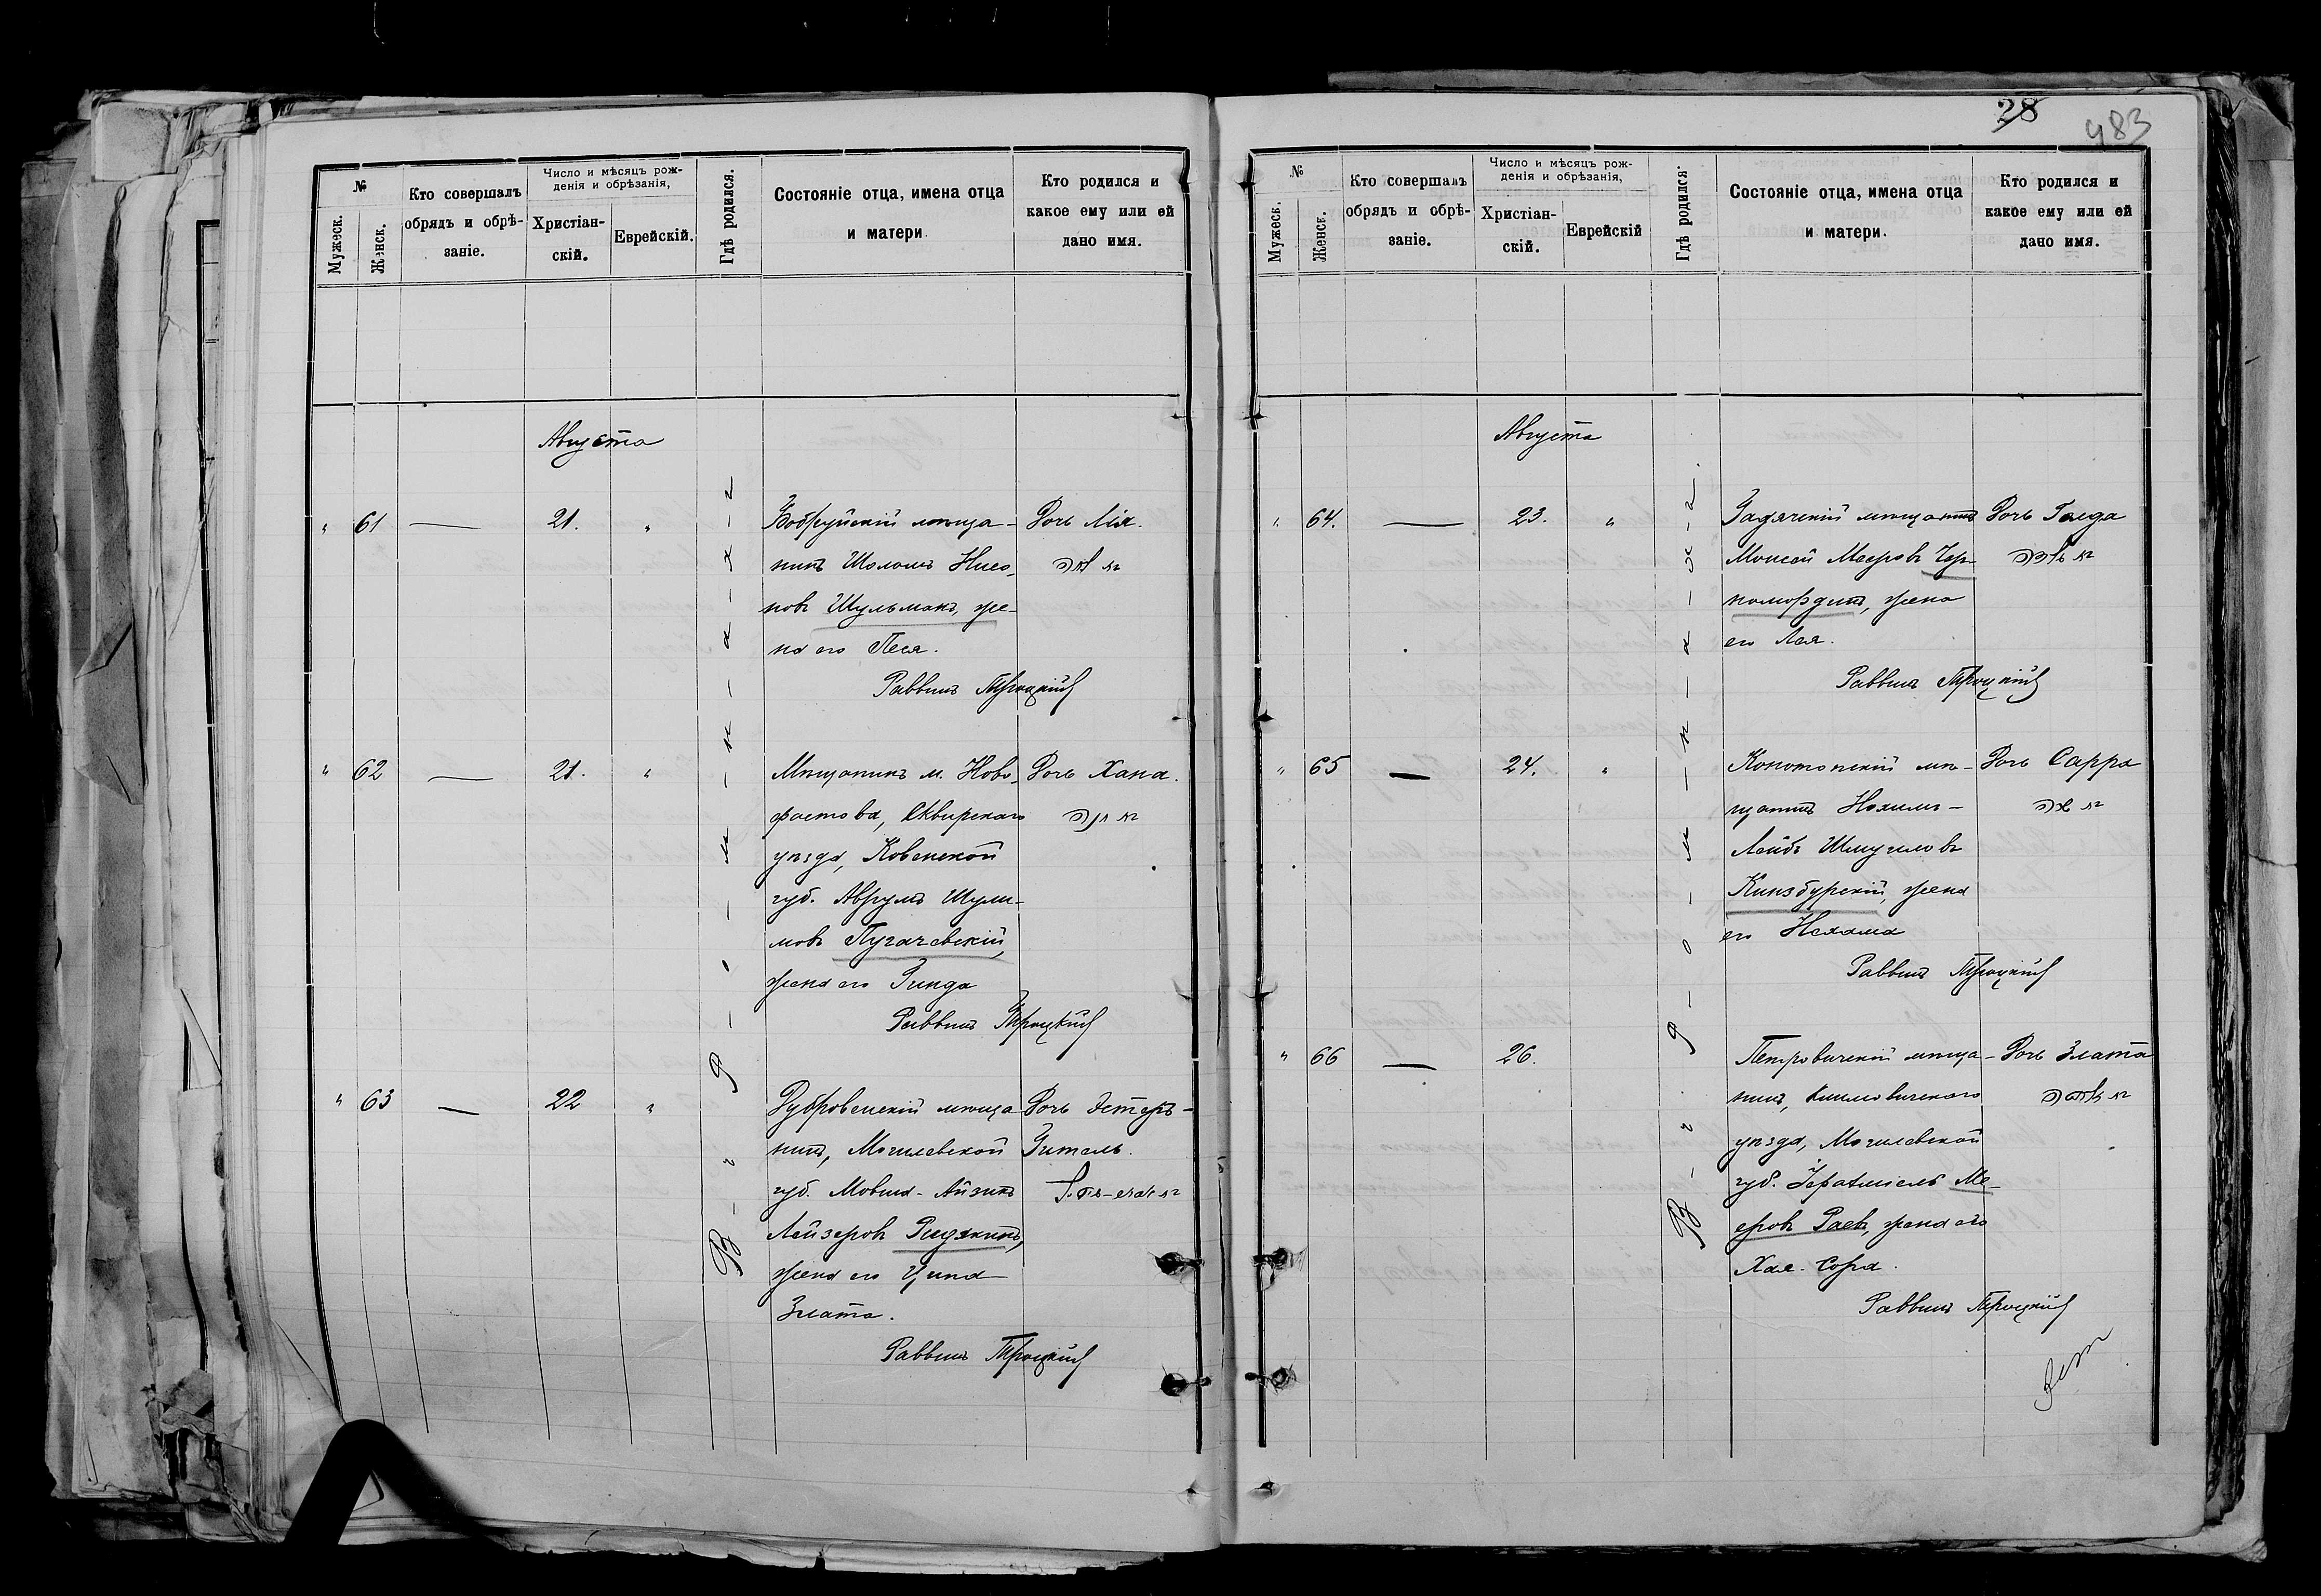 28
483
№
Мужеск.
Женск.
Кто совершалъ
обрядъ и обрѣ-
заніе.
Число и мѣсяцъ рож-
денія и обрѣзанія,
Христіан-
скій.
Еврейскій.
Гдѣ родился.
Состояніе отца, имена отца
и матери
Кто родился и
какое ему или ей
дано имя.
Августа
" 61 — 21. "
Бобруйскій мѣща-
нинъ Шоломъ Нисо-
новъ Шульманъ, же-
на его Песя.
Раввинъ Троцкій
Дочь Лія.
" 62 — 21. "
Мѣщанинъ м. Ново-
фастова, Сквирскаго
уѣзда, Ковенской
губ. Аврумъ Шули-
мовъ Пугачевскій,
жена его Зинда
Раввинъ Троцкій
Дочь Хана.
" 63 — 22 "
Дубровенскій мѣща
нинъ, Могилевской
губ. Мовша-Айзикъ
Лейзеровъ
жена его Ципа
Злата.
Раввинъ Троцкій
Дочь Эстеръ-
Гитель.
№
Мужеск.
Женск.
Кто совершалъ
обрядъ и обрѣ-
заніе.
Число и мѣсяцъ рож-
денія и обрѣзанія,
Христіан-
скій.
Еврейскій
Гдѣ родился.
Состояніе отца, имена отца
и матери.
Кто родился и
какое ему или ей
дано имя.
Августа
" 64. — 23. "
Гадячскій мѣщанинъ
Моисей Мееровъ Чер-
номордикъ, жена
его Лея.
Раввинъ Троцкій
Дочь Голда
" 65 — 24. "
Конотопскій мѣ-
щанинъ Нохимъ-
Лейбъ Шмуиловъ
Кинзбурскій, жена
его Нехама
Раввинъ Троцкій
Дочь Сарра
" 66 — 26.
Петровичскій мѣща-
нинъ, Климовичскаго
уѣзда, Могилевской
губ. Іерахміель Ме-
еровъ Раевъ, жена его
Хая-Сора.
Раввинъ Троцкій
Дочь Злата